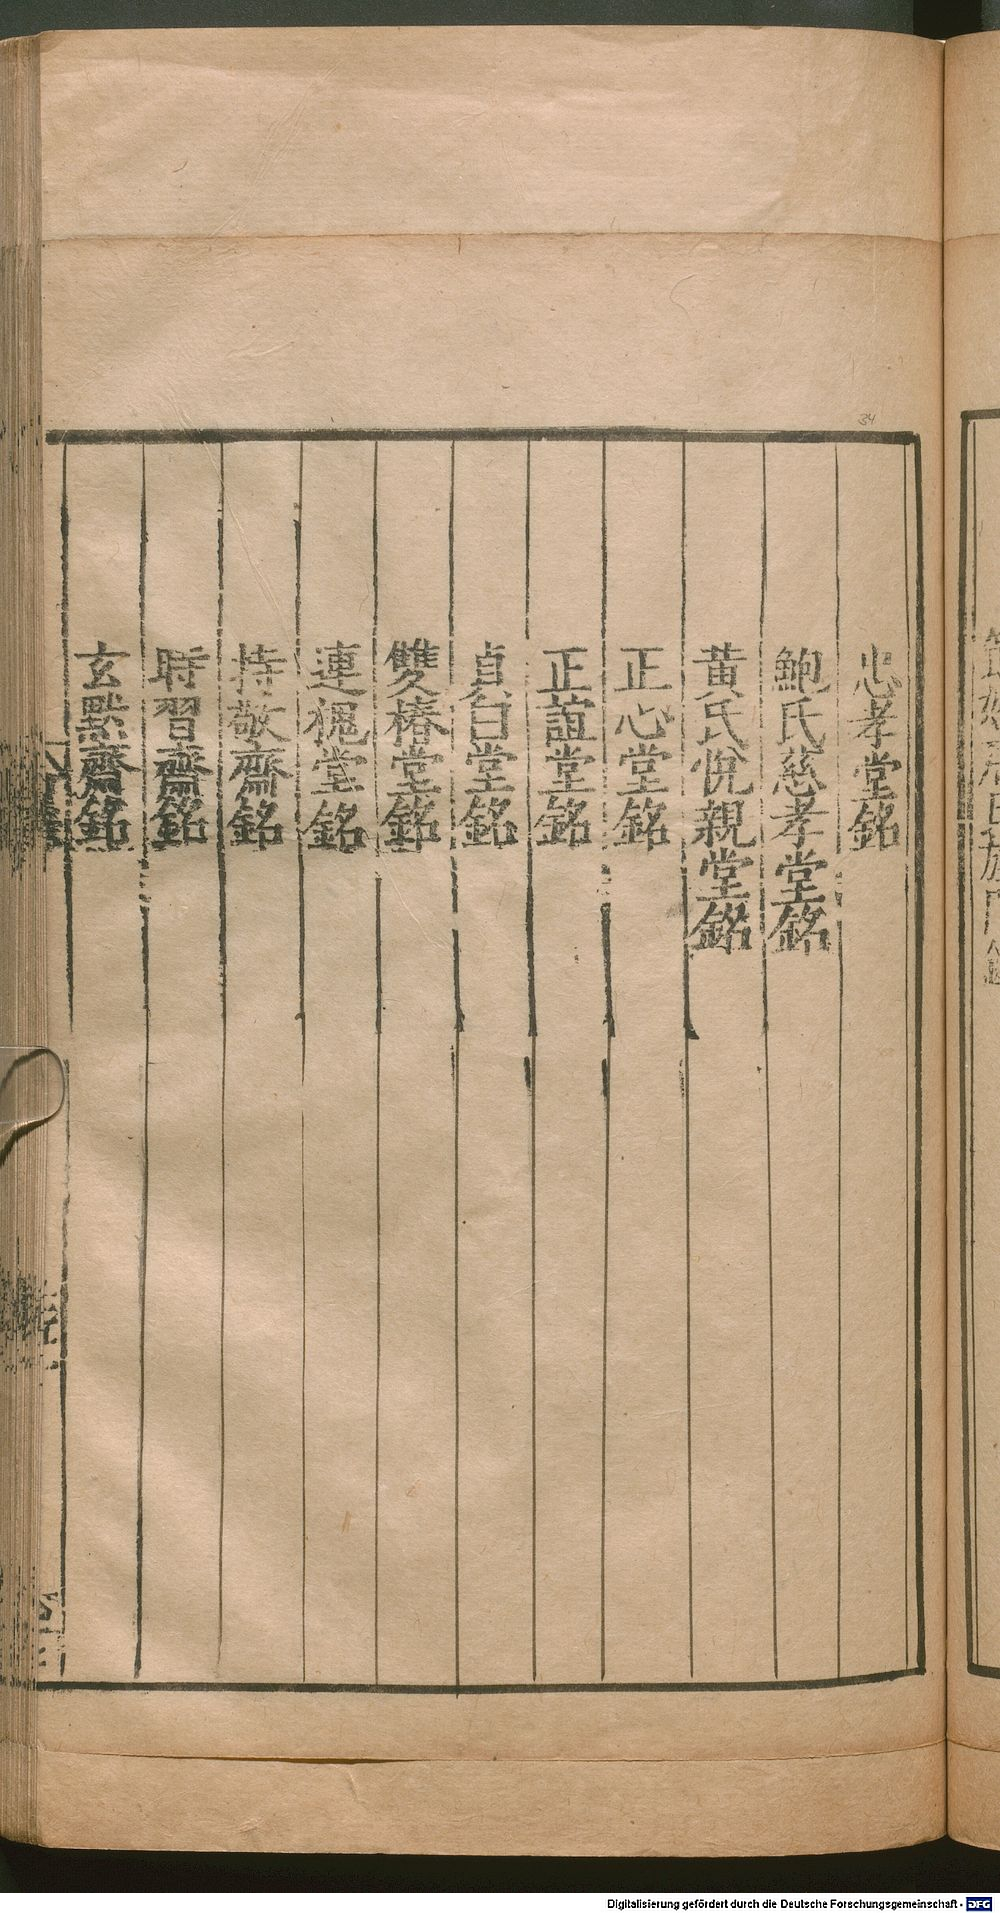 34
忠孝堂銘
鮑氏慈孝堂銘
黄氏悅親堂銘
正心堂銘
正誼堂銘
貞白堂銘
雙椿堂銘
連槐堂銘
持敬齋銘
時習齋銘
玄黙齋銘
Digitalisierung gefördert durch die Deutsche Forschungsgemeinschaft - DFG